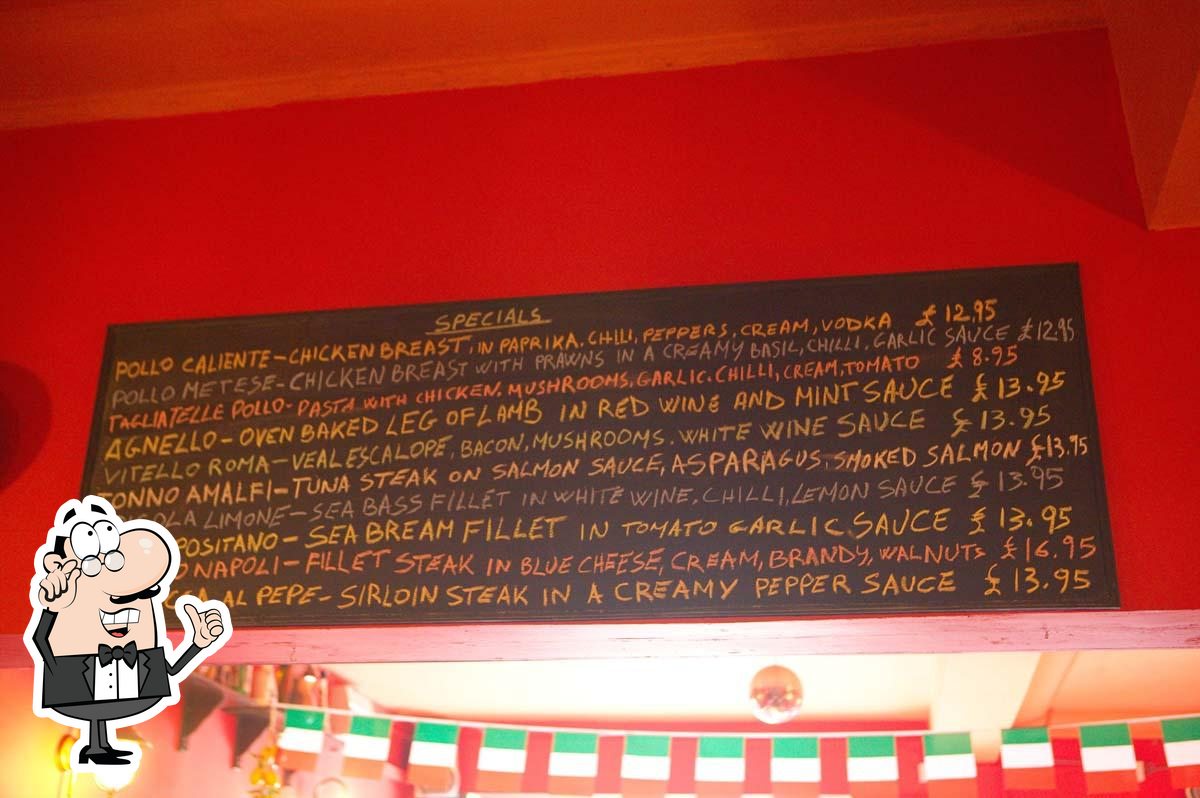 SPECIALS
POLLO CALIENTE - CHICKEN BREAST, IN PAPRIKA. CHILI, PEPPERS, CREAM, VODKA £12.95
POLLO METESE - CHICKEN BREAST WITH PRAWNS IN A CREAMY BASIL, CHILLI, GARLIC SAUCE £12.95
TAGLIATELLE POLLO - PASTA WITH CHICKEN. MUSHROOMS, GARLIC. CHILLI, CREAM, TOMATO £8.95
AGNELLO - OVEN BAKED LEG OF LAMB IN RED WINE AND MINT SAUCE £13.95
VITELLO ROMA - VEAL ESCALOPE, BACON, MUSHROOMS. WHITE WINE SAUCE £13.95
TONNO AMALFI - TUNA STEAK ON SALMON SAUCE, ASPARAGUS, SMOKED SALMON £13.95
LIMONE - SEA BASS FILLET IN WHITE WINE, CHILLI, LEMON SAUCE £13.95
POSITANO - SEA BREAM FILLET IN TOMATO GARLIC SAUCE £13.95
NAPOLI - FILLET STEAK IN BLUE CHEESE, CREAM, BRANDY, WALNUTS £16.95
AL PEPE - SIRLOIN STEAK IN A CREAMY PEPPER SAUCE £13.95